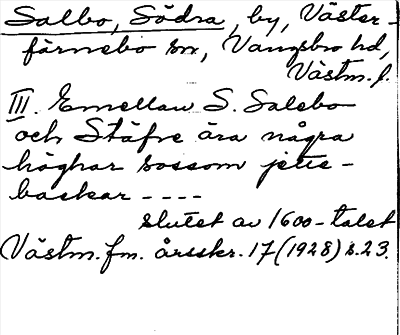 Salbo, Södra, by, Väster-
färnebo sn, Vangsbro hd,
Västm. l.
III. Emellan S. Salebo
och Stäfre ära några
höghar sossom jette-
backar ----
slutet av 1600-talet
Västm. fm. årsskr. 17 (1928) s. 23.